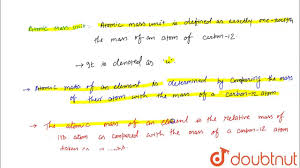 Atomic mass unit: Atomic mass unit is defined as exactly one-
the mass of an atom of carbon-12
→ It is denoted as 'u'
→ Atomic mass of an element is determined by comparing the mass
of their atom with the mass of a carbon-12 atom
→ The atomic mass of an element is the relative mass of
its atom as compared with the mass of a carbon-12 atom
taken as
doubtnut